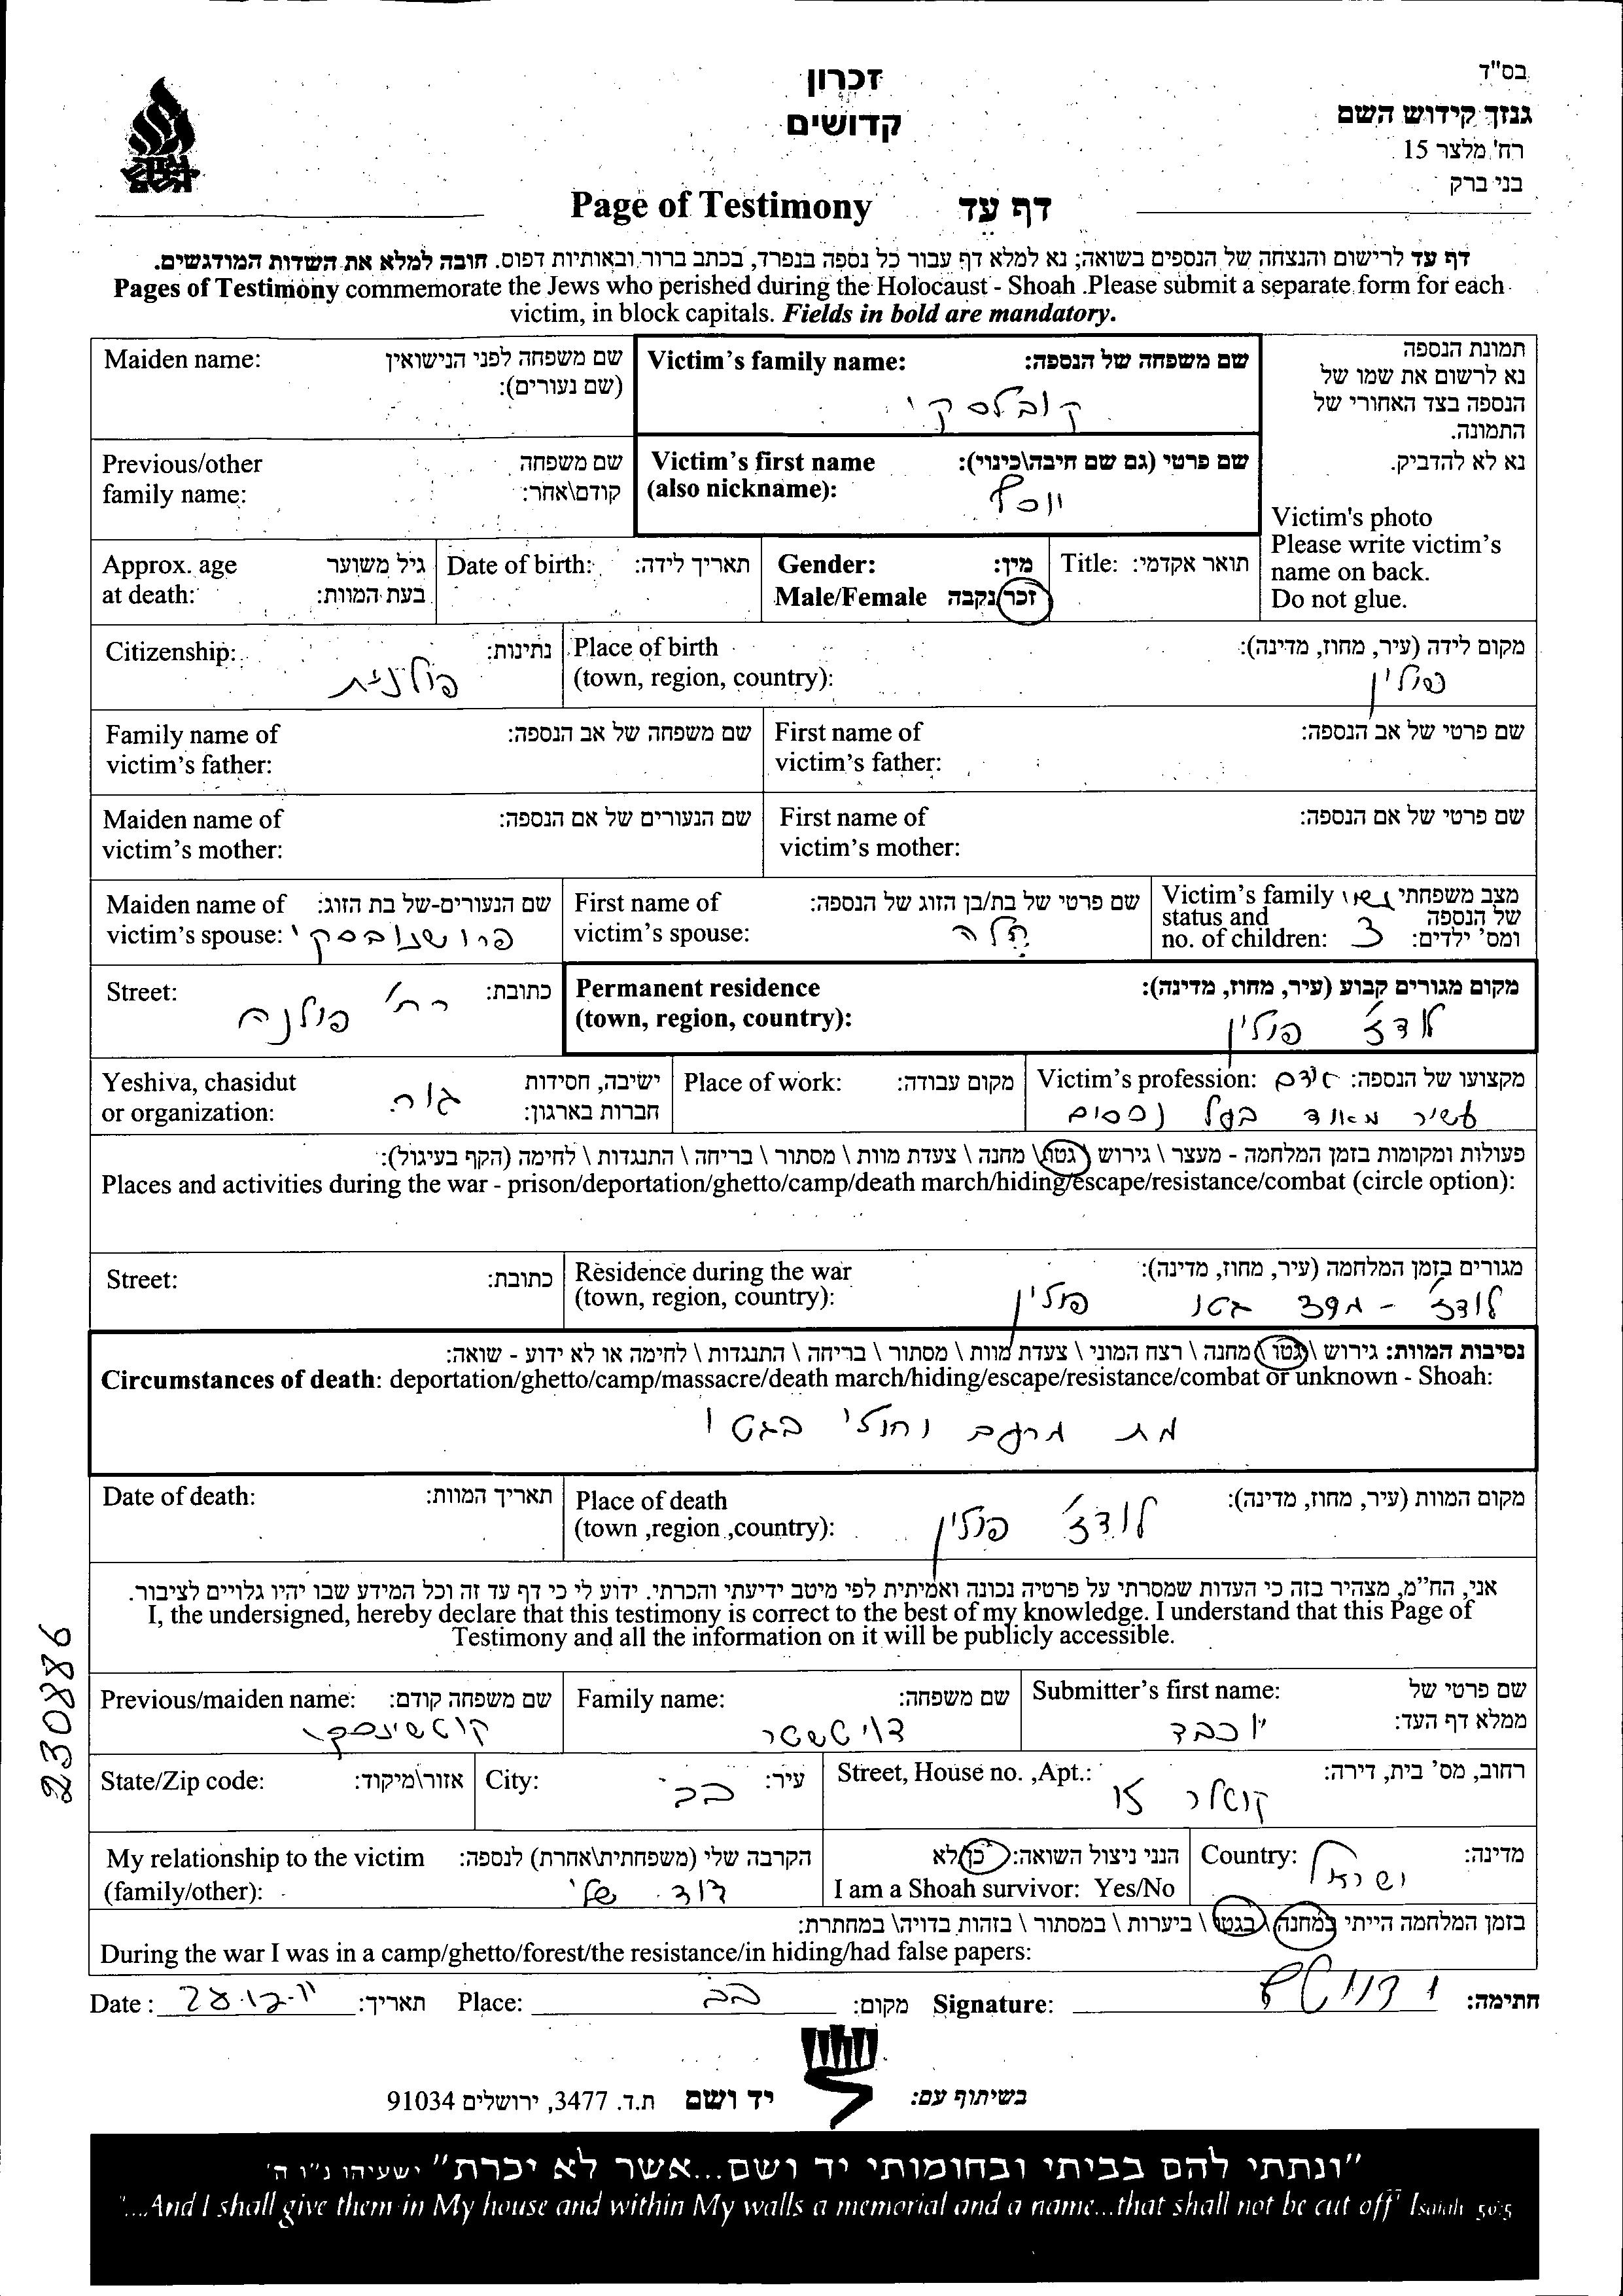 בס"ד
גנזך קידוש השם
רח' מלצר 15
בני ברק
זכרון
קדושים
Page of Testimony דף עד
דף עד לרישום והנצחה של הנספים בשואה; נא למלא דף עבור כל נספה בנפרד, בכתב ברור ובאותיות דפוס. חובה למלא את השדות המודגשים.
Pages of Testimony commemorate the Jews who perished during the Holocaust - Shoah .Please submit a separate form for each
victim, in block capitals. Fields in bold are mandatory.
תמונת הנספה
נא לרשום את שמו של
הנספה בצד האחורי של
התמונה.
נא לא להדביק.
Victim's photo
Please write victim's
name on back.
Do not glue.
Victim's family name: שם משפחה של הנספה:
קובלסקי
Maiden name: שם משפחה לפני הנישואין
(שם נעורים):
Victim's first name שם פרטי (גם שם חיבה\כינוי):
(also nickname):
יוסף
Previous/other שם משפחה
family name: קודם\אחר:
Title: תואר אקדמי:
Gender: מין:
Male/Female זכר/נקבה
Date of birth: תאריך לידה:
Approx. age גיל משוער
at death: בעת המוות:
Place of birth מקום לידה (עיר, מחוז, מדינה):
(town, region, country): פולין
Citizenship: נתינות:
פולנית
First name of שם פרטי של אב הנספה:
victim's father:
Family name of שם משפחה של אב הנספה:
victim's father:
First name of שם פרטי של אם הנספה:
victim's mother:
Maiden name of שם הנעורים של אם הנספה:
victim's mother:
Victim's family מצב משפחתי נשוי
status and של הנספה
no. of children: 3 ומס' ילדים:
First name of שם פרטי של בת/בן הזוג של הנספה:
victim's spouse:
Maiden name of שם הנעורים-של בת הזוג:
victim's spouse: פרושנובסקי
Permanent residence מקום מגורים קבוע (עיר, מחוז, מדינה):
(town, region, country): לודז' פולין
Street: כתובת: רח'
פולנה
Victim's profession: מקצועו של הנספה: אדם
עשיר מאוד בעל נכסים
Place of work: מקום עבודה:
Yeshiva, chasidut ישיבה, חסידות
or organization: חברות בארגון:
גור
פעולות ומקומות בזמן המלחמה - מעצר \ גירוש \ גטו \ מחנה \ צעדת מוות \ מסתור \ בריחה \ התנגדות \ לחימה (הקף בעיגול):
Places and activities during the war - prison/deportation/ghetto/camp/death march/hiding/escape/resistance/combat (circle option):
Residence during the war מגורים בזמן המלחמה (עיר, מחוז, מדינה):
(town, region, country): לודז' - גטו פולין
Street: כתובת:
נסיבות המוות: גירוש \ גטו \ מחנה \ רצח המוני \ צעדת מוות \ מסתור \ בריחה \ התנגדות \ לחימה או לא ידוע - שואה:
Circumstances of death: deportation/ghetto/camp/massacre/death march/hiding/escape/resistance/combat or unknown - Shoah:
מת מרעב וחולי בגטו
Place of death מקום המוות (עיר, מחוז, מדינה):
(town ,region ,country): לודז' פולין
Date of death: תאריך המוות:
אני, הח"מ, מצהיר בזה כי העדות שמסרתי על פרטיה נכונה ואמיתית לפי מיטב ידיעתי והכרתי. ידוע לי כי דף עד זה וכל המידע שבו יהיו גלויים לציבור.
I, the undersigned, hereby declare that this testimony is correct to the best of my knowledge. I understand that this Page of
Testimony and all the information on it will be publicly accessible.
Submitter's first name: שם פרטי של
ממלא דף העד: יוכבד
Family name: שם משפחה:
Previous/maiden name: שם משפחה קודם:
Street, House no. ,Apt.: רחוב, מס' בית, דירה:
City: עיר: בב
State/Zip code: אזור\מיקוד:
Country: מדינה:
ישראל
הנני ניצול השואה: כן/לא
I am a Shoah survivor: Yes/No
My relationship to the victim הקרבה שלי (משפחתית\אחרת) לנספה:
(family/other): דוד שלי
בזמן המלחמה הייתי במחנה \ בגטו \ ביערות \ במסתור \ בזהות בדויה\ במחתרת:
During the war I was in a camp/ghetto/forest/the resistance/in hiding/had false papers:
Date : 28.12.11 תאריך: Place: בב מקום: Signature: חתימה:
230886
בשיתוף עם: יד ושם ת.ד. 3477, ירושלים 91034
"ונתתי להם בביתי ובחומותי יד ושם...אשר לא יכרת" ישעיהו נ"ו ה'
"...And I shall give them in My house and within My walls a memorial and a name...that shall not be cut off" Isaiah 56:5